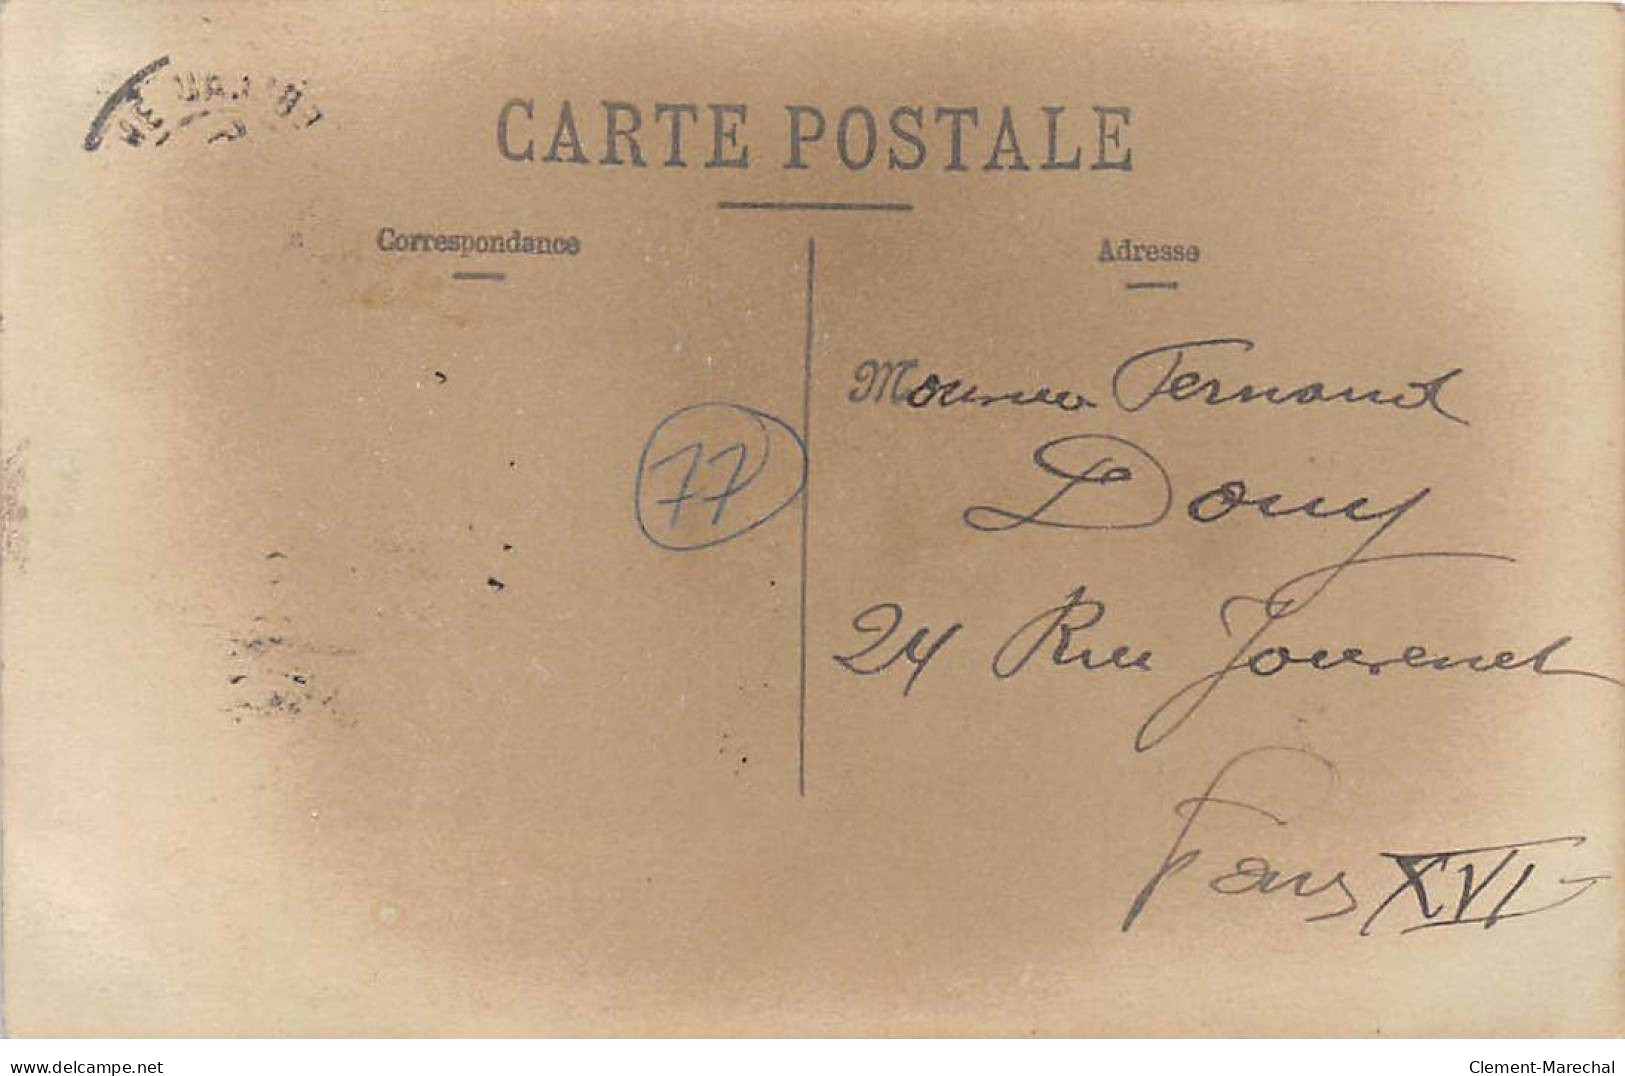 CARTE POSTALE
Correspondance
Adresse
Monsieur Fernand
Douy
77
24 Rue Jouvenet
Paris XVI
delcampe.net
Clement-Marechal